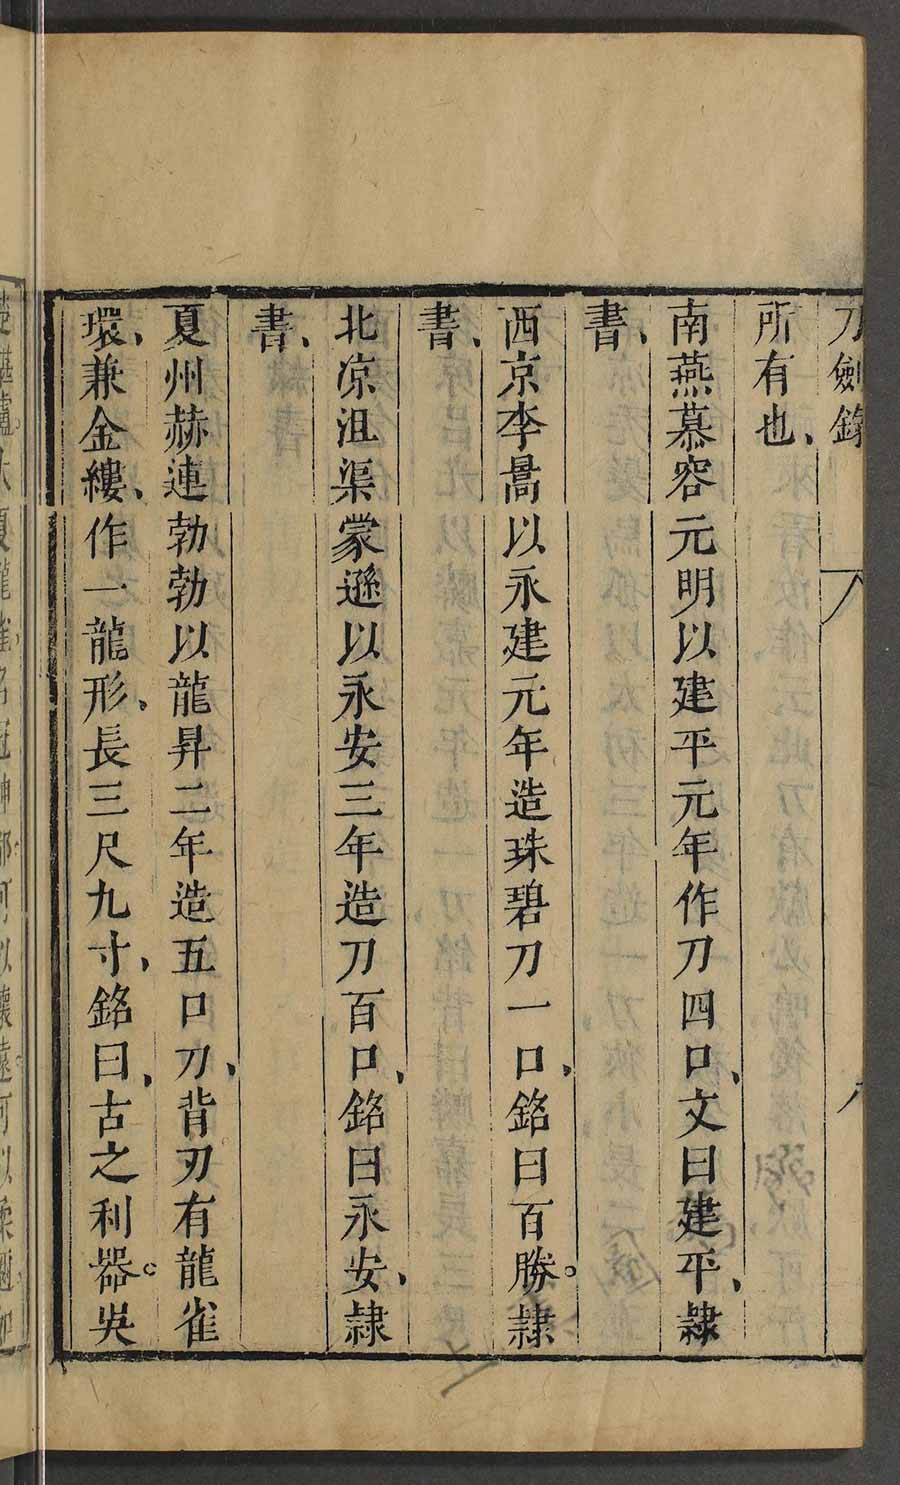 刀劍錄 八
所有也、
南燕慕容元明以建平元年作刀四口、文曰建平、隷
書、
西京李暠以永建元年造珠碧刀一口、銘曰百勝。隷
書、
北凉沮渠蒙遜以永安三年造刀百口、銘曰永安、隷
書、
夏州赫連勃勃以龍昇二年造五口刀、背刃有龍雀
環、兼金縷、作一龍形、長三尺九寸、銘曰、古之利器。吳